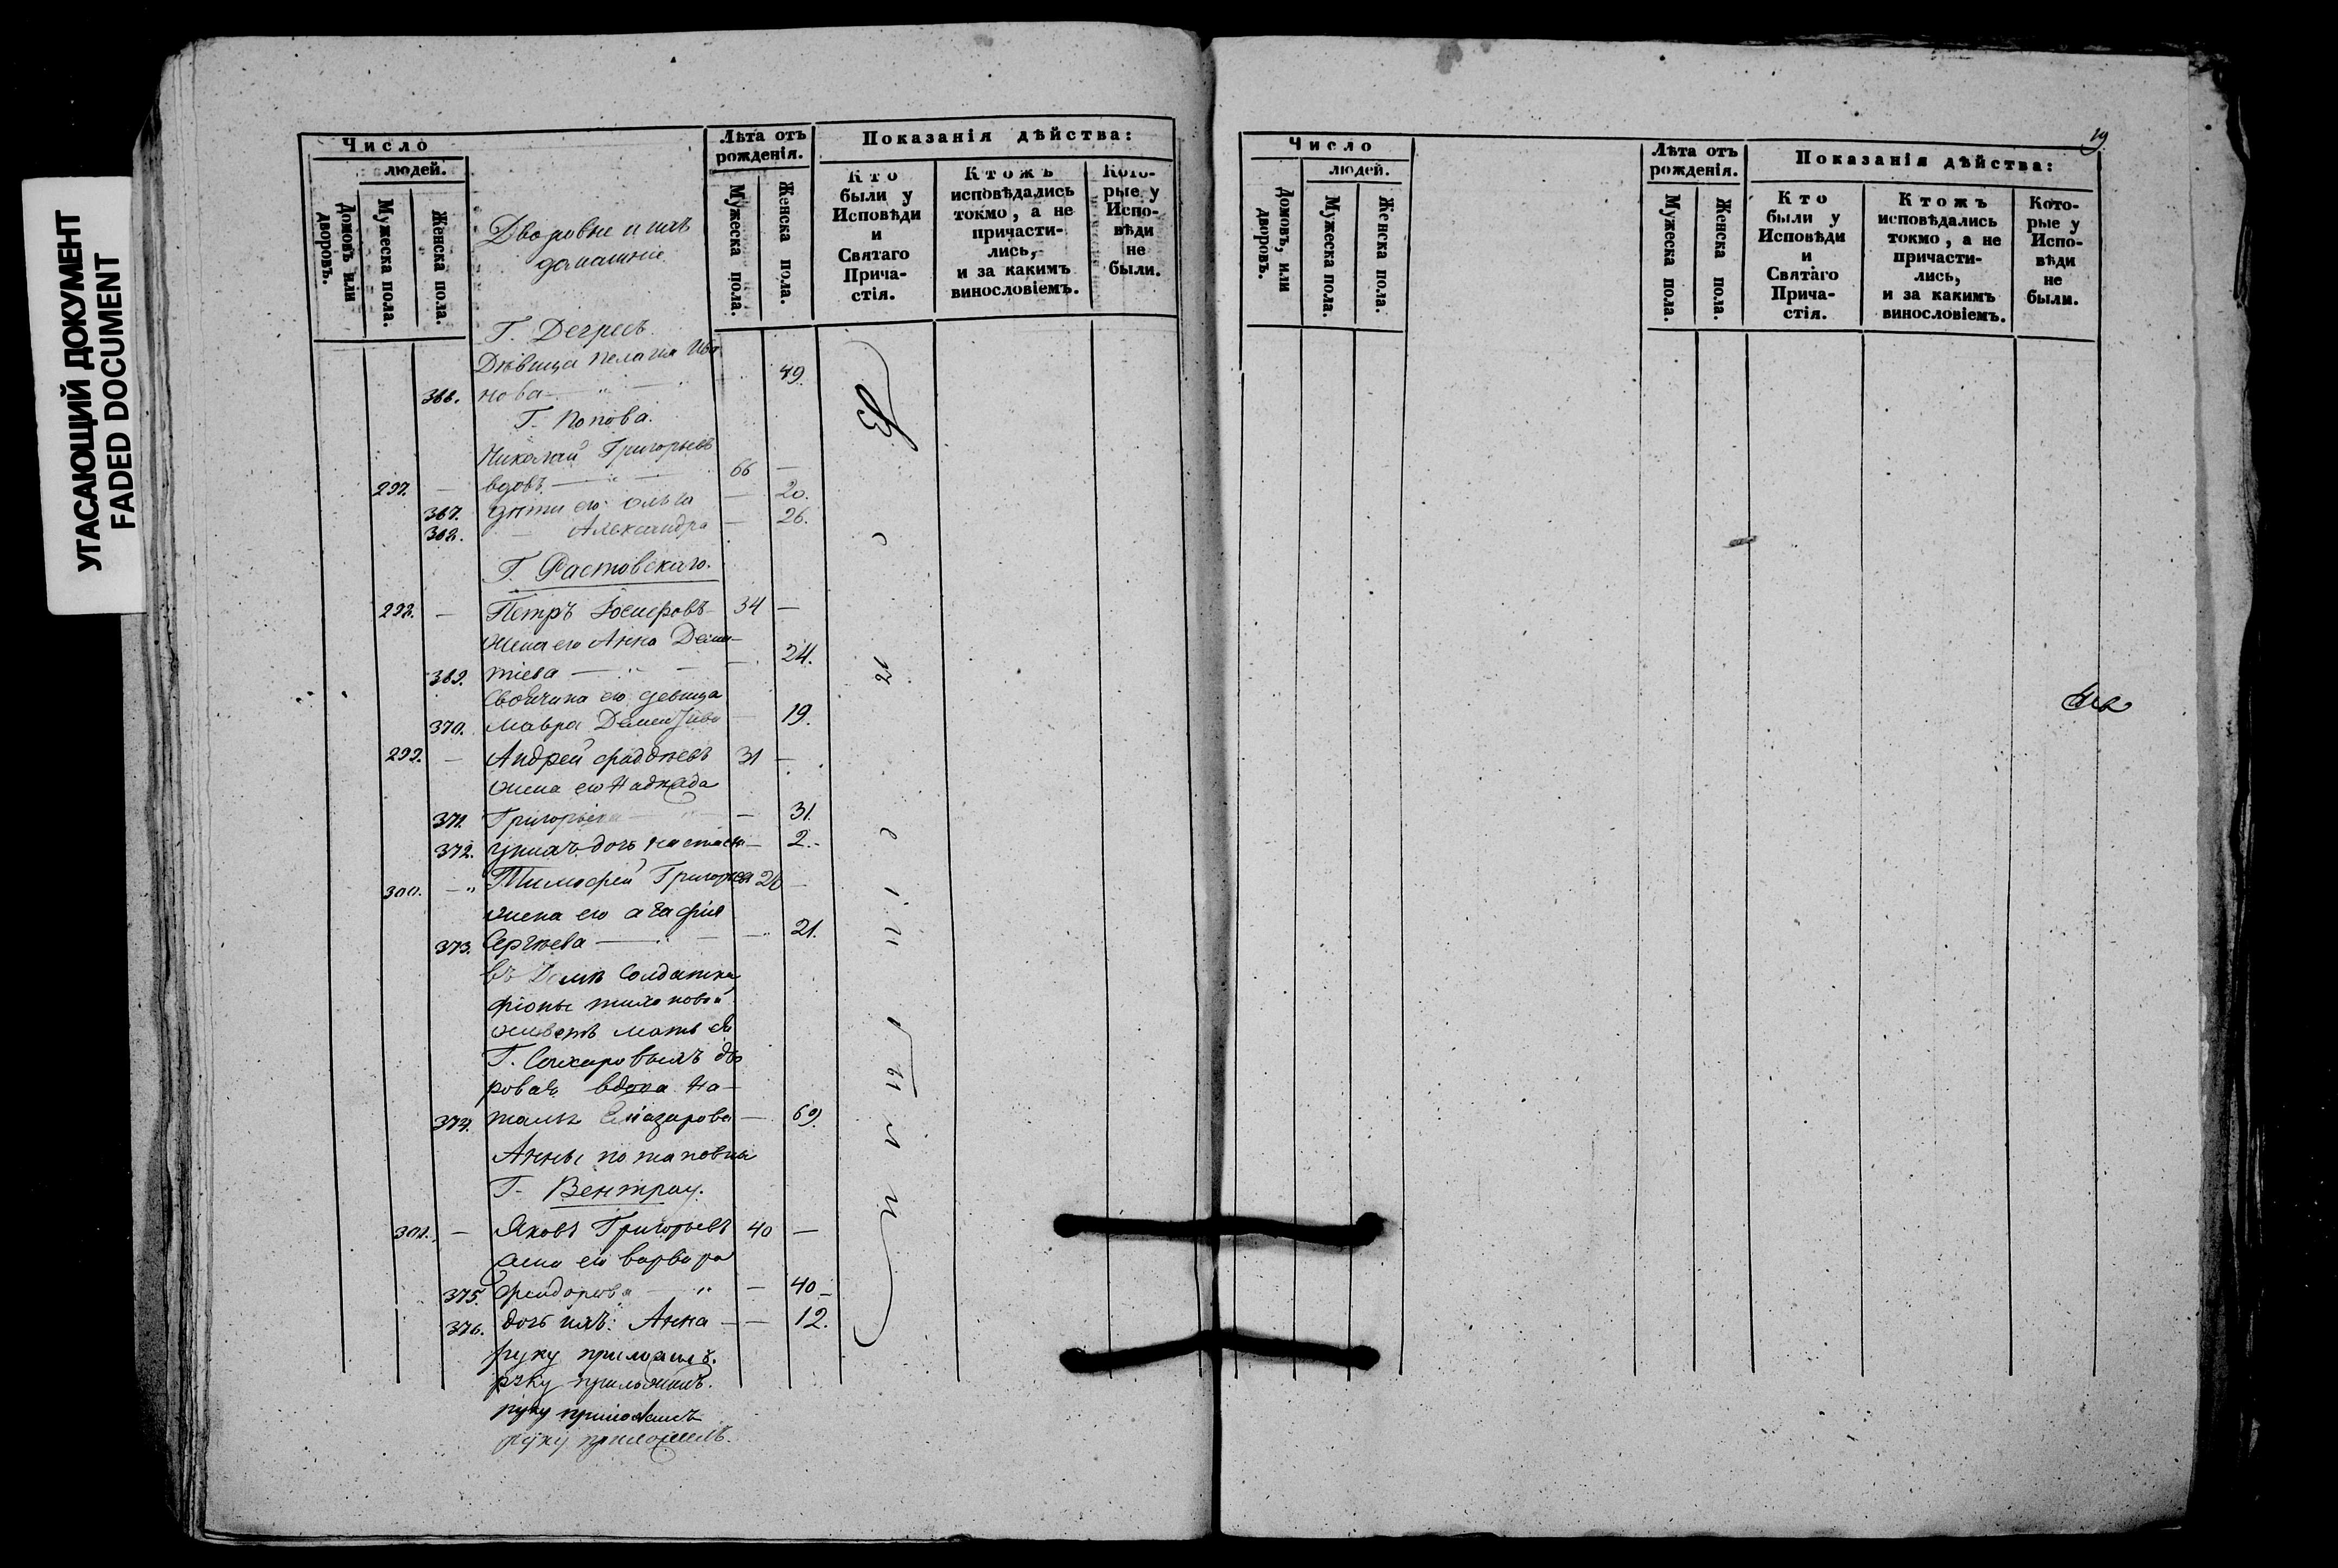 УГАСАЮЩИЙ ДОКУМЕНТ
FADED DOCUMENT
Число
людей.
Домовъ или дворовъ.
Мужеска пола.
Женска пола.
Дворовые и ихъ
домашніе
Лѣта отъ рожденія.
Мужеска пола.
Женска пола.
Показанія дѣйства:
Кто были у Исповѣди и Святаго Прича-стія.
Ктожъ исповѣдались токмо, а не причасти-лись, и за какимъ винословіемъ.
Кото-рые у Испо-вѣди не были.
Г. Дегресъ
Дѣвица Пелагия Ива
366. нова 49.
Г. Попова.
Николай Григорьевъ
297. — вдовъ 66 —
367. Дѣти его Ольга — 20.
368. — Александра — 26.
Г. Растовскаго.
298. — Петръ Іосифовъ 34 —
жена его Анна Демен-
369. тіева — 24.
Своячина его девица
370. Мавра — 19.
299. — Андрей Фаддѣевъ 31 —
жена его Надежда
371. Григорьева — 31.
372. у нихъ дочь Настасья — 2.
300. — Тимофей Григорьевъ 26 —
жена его Агафия
373. Сергѣева — 21.
въ Доме Солдатки
Фіоны Тихоновой
живетъ мать ея
Г. Сахаровыхъ дво
ровая вдова На-
374. талья Елиазарова — 69.
Анны Потаповны
Г. Вентрау.
301. — Яковъ Григорьевъ 40 —
жена его Варвара
375. Феодорова — 40 —
376. дочь ихъ: Анна — 12.
руку приложилъ.
руку приложилъ.
руку приложилъ
руку приложилъ.
Число
людей.
Домовъ, или дворовъ.
Мужеска пола.
Женска пола.
Лѣта отъ рожденія.
Мужеска пола.
Женска пола.
Показанія дѣйства:
Кто были у Исповѣди и Святаго Прича-стія.
Ктожъ исповѣдались токмо, а не причасти-лись, и за какимъ винословіемъ.
Кото-рые у Испо-вѣди не были.